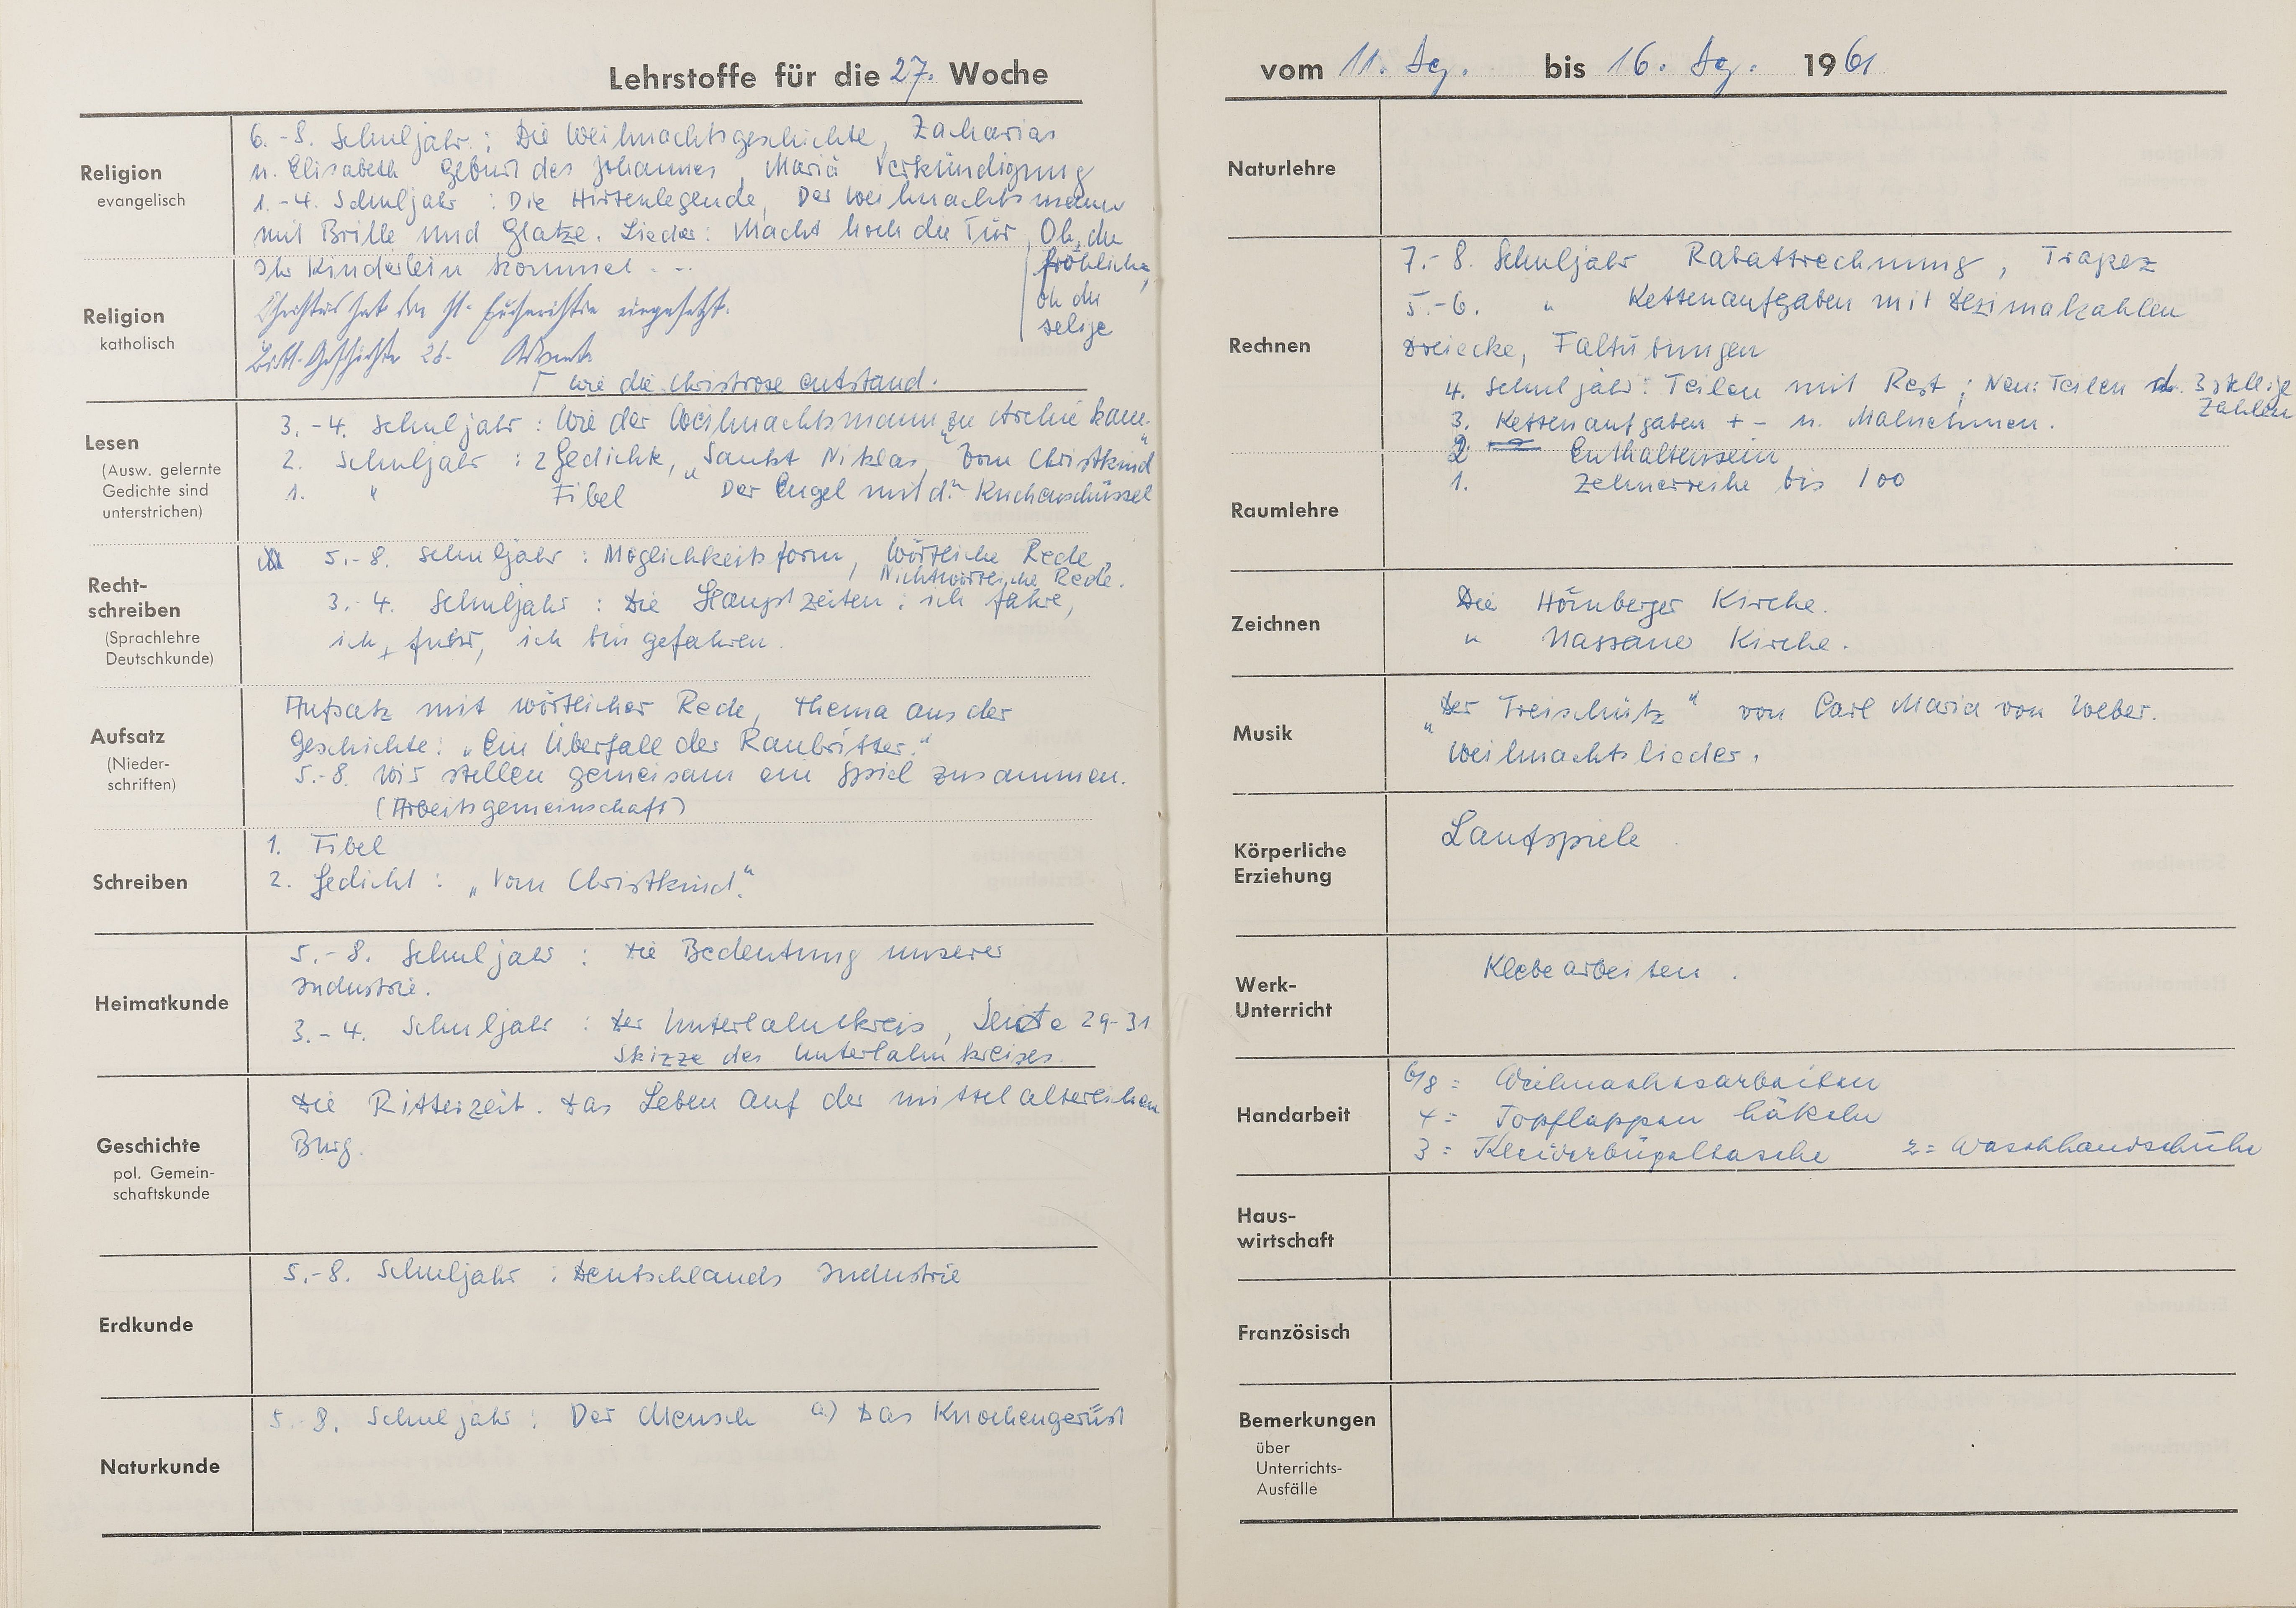 Lehrstoffe für die 27. Woche
Religion
evangelisch
6.-8. Schuljahr: Die Weihnachtsgeschichte, Zacharias
u. Elisabeth Geburt des Johannes, Mariä Verkündigung
1.-4. Schuljahr: Die Hirtenlegende, Der Weihnachtsmann
mit Brille und Glatze. Lieder: Macht hoch die Tür, Oh, du
fröhliche,
oh du
selige
Ihr Kinderlein kommet...
Religion
katholisch
Christus hat die hl. Eucharistie eingesetzt.
Bibl. Geschichte 26. Advent
Γ wie die Christrose entstand.
Lesen
(Ausw. gelernte
Gedichte sind
unterstrichen)
3.-4. Schuljahr: Wie der Weihnachtsmann zu Archie kam.
2. Schuljahr: 2 Gedichte, "Sankt Niklas, "Vom Christkind"
1. " Fibel Der Engel mit d. Kuchenschüssel
Recht-
schreiben
(Sprachlehre
Deutschkunde)
5.-8. Schuljahr: Möglichkeitsform, Wörtliche Rede,
Nichtwörtliche Rede.
3.-4. Schuljahr: Die Hauptzeiten: ich fahre,
ich fuhr, ich bin gefahren.
Aufsatz
(Nieder-
schriften)
Aufsatz mit wörtlicher Rede, Thema aus der
Geschichte: "Ein Überfall der Raubritter."
5.-8. Wir stellen gemeisam ein Spiel zusammen.
(Arbeitsgemeinschaft)
Schreiben
1. Fibel
2. Gedicht: "Vom Christkind."
Heimatkunde
5.-8. Schuljahr: Die Bedeutung unserer
Industrie.
3.-4. Schuljahr: Der Unterlahnkreis, Seite 29-31
Skizze des Unterlahnkreises.
Geschichte
pol. Gemein-
schaftskunde
Die Ritterzeit. Das Leben auf der mittelalterlichen
Burg.
Erdkunde
5.-8. Schuljahr: Deutschlands Industrie
Naturkunde
5.-8. Schuljahr: Der Mensch a.) Das Knochengerüst
vom 11. Dez. bis 16. Dez. 1961
Naturlehre
Rechnen
7.-8. Schuljahr Rabattrechnung, Trapez
5.-6. " Kettenaufgaben mit Dezimalzahlen
Dreiecke, Faltübungen
4. Schuljahr: Teilen mit Rest; Neu: Teilen d. 3stellige
Zahlen
3. Kettenaufgaben + - u. Malnehmen.
2. Enthaltensein
Raumlehre
1. Zehnerreihe bis 100
Zeichnen
Die Hömberger Kirche.
" Nassauer Kirche.
Musik
"Der Freischütz" von Carl Maria von Weber.
Weihnachtslieder.
Körperliche
Erziehung
Laufspiele
Werk-
Unterricht
Klebearbeiten.
Handarbeit
6/8 = Weihnachtsarbeiten
4 = Topflappen häkeln
3 = Kleiderbügeltasche 2 = Waschhandschuhe
Haus-
wirtschaft
Französisch
Bemerkungen
über
Unterrichts-
Ausfälle